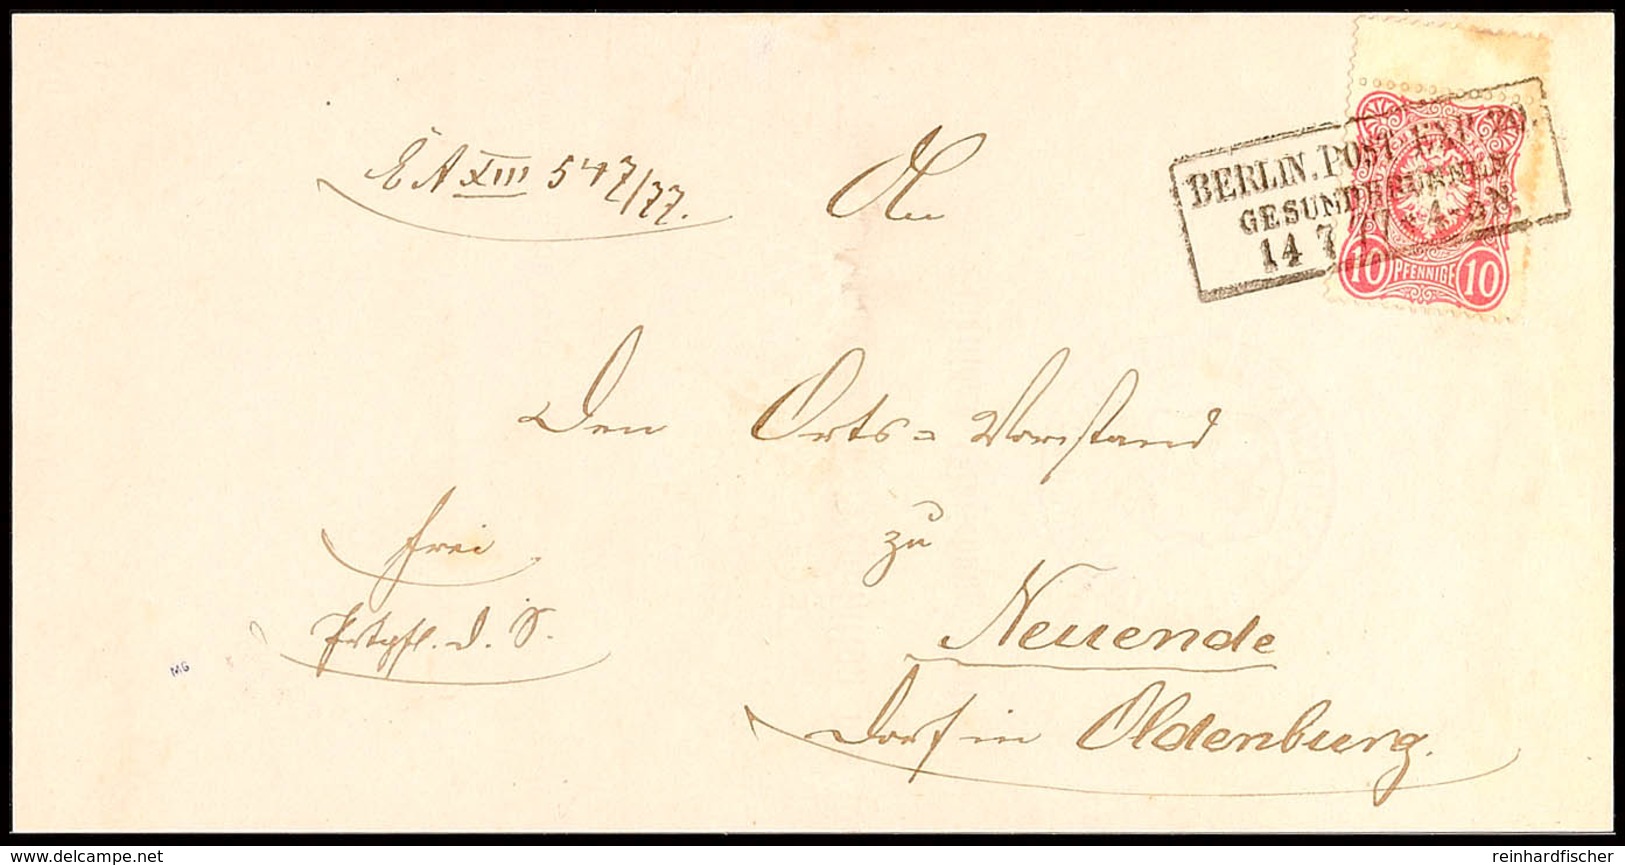 E A XIII 547/77.
An
BERLIN. POST EXP. 20.
GESUNDBRUNNEN
14 7 77 4-5 N.
10 PFENNIGE 10
Den Orts-Vorstand
zu
frei
Neuende
Dorf in Oldenburg.
MG
delcampe.net
reinhardfischer